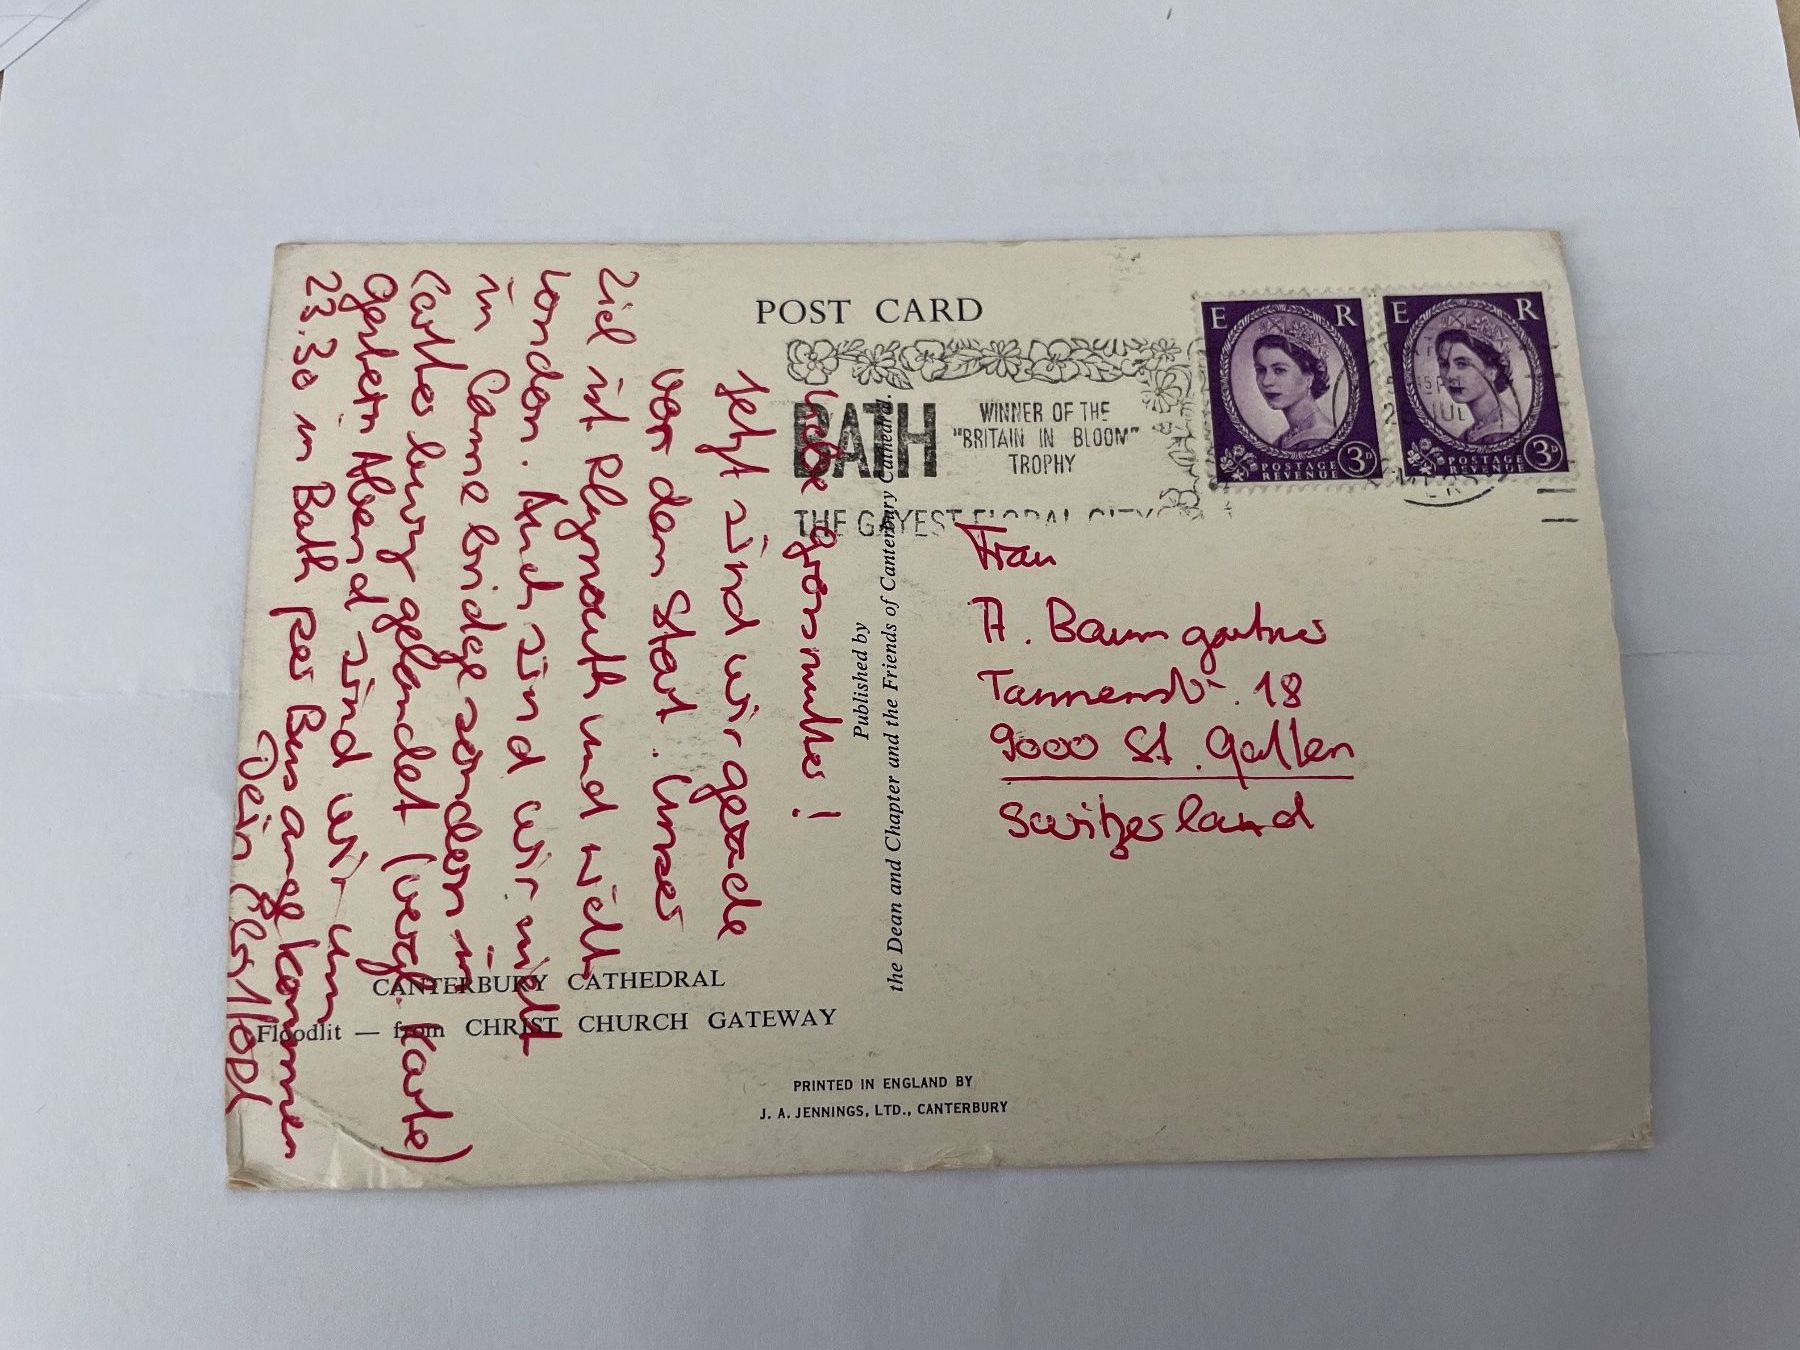 POST CARD
BATH
WINNER OF THE
"BRITAIN IN BLOOM"
TROPHY
THE GAYEST FLORAL CITY
E R
POSTAGE
REVENUE
3D
E R
POSTAGE
REVENUE
3D
JUL
Liebe Grossmutter!
Jetzt sind wir gerade
vor dem Start. Unser
Ziel ist Plymouth und nicht
London. Auch sind wir nicht
in Cambridge sondern in
Canterbury gelandet (vergl. Karte)
Gestern Abend sind wir um
23.30 in Bath per Bus angekommen
Dein
Published by
the Dean and Chapter and the Friends of Canterbury Cathedral.
Frau
A. Baumgartner
Tannenstr. 18
9000 St. Gallen
Switzerland
CANTERBURY CATHEDRAL
Floodlit — from CHRIST CHURCH GATEWAY
PRINTED IN ENGLAND BY
J. A. JENNINGS, LTD., CANTERBURY